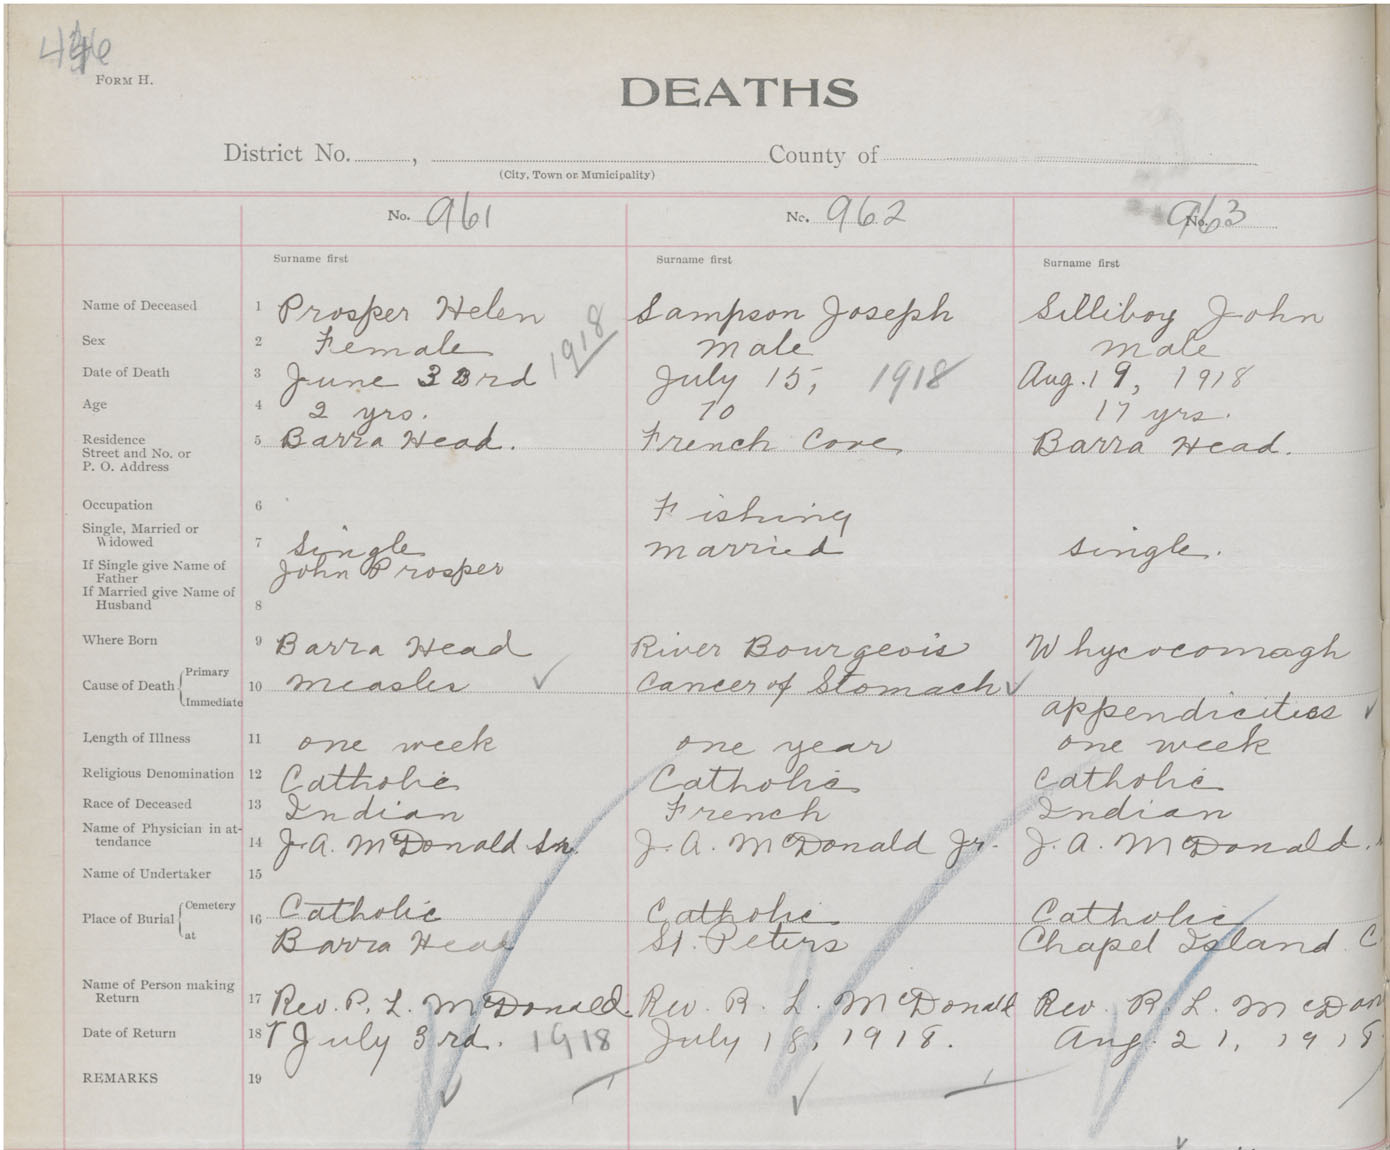 FORM H.
DEATHS
District No. , County of
(City, Town or Municipality)
No. 961 No. 962 No. 963
Surname first Surname first Surname first
Name of Deceased 1 Prosper Helen Sampson Joseph Silliboy John
Sex 2 Female Male Male
1918
Date of Death 3 June rd July 15, 1918 Aug. 19, 1918
Age 4 2 yrs. 70 17 yrs.
Residence 5 Barra Head. French Cove Barra Head.
Street and No. or
P. O. Address
Occupation 6 Fishing
Single, Married or
Widowed 7 Single married single.
If Single give Name of John Prosper
Father
If Married give Name of
Husband 8
Where Born 9 Barra Head River Bourgeois Whycocomagh
Primary
Cause of Death 10 measles Cancer of Stomach
Immediate appendicitiss
Length of Illness 11 one week one year one week
Religious Denomination 12 Catholic Catholic Catholic
Race of Deceased 13 Indian French Indian
Name of Physician in at-
tendance 14 J. A. McDonald Sr. J. A. McDonald Jr. J. A. McDonald.
Name of Undertaker 15
Cemetery
Place of Burial 16 Catholic Catholic Catholic
at Barra Head St. Peters Chapel Island C
Name of Person making
Return 17 Rev. P. L. McDonald. Rev. R. L. McDonald Rev. R. L. McDon
Date of Return 18 July 3rd. 1918 July 18, 1918. Aug. 21, 1918
REMARKS 19